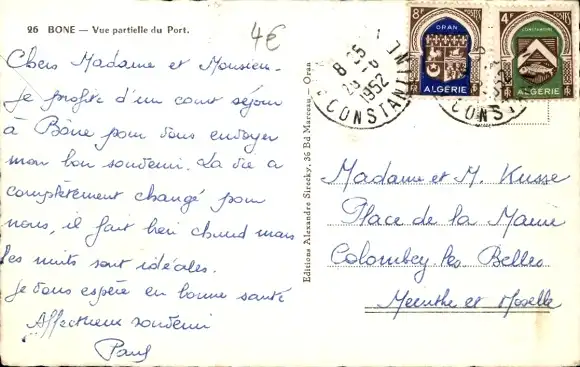 26 BONE — Vue partielle du Port.
4€
Chers Madame et Monsieur -
Je profite d'un court séjour
à Bône pour vous envoyer
mon bon souvenir. La vie a
complètement changé pour
nous, il fait bien chaud mais
les nuits sont idéales.
Je vous espère en bonne santé
Affectueux souvenir
Paul
Editions Alexandre Sirecky, 36 Bd Marceau - Oran
8F
ORAN
ALGERIE
RF
4F
CONSTANTINE
ALGERIE
RF
1952
CONSTANTINE
CONST
Madame et M. Kusse
Place de la Mairie
Colombey les Belles
Meurthe et Moselle